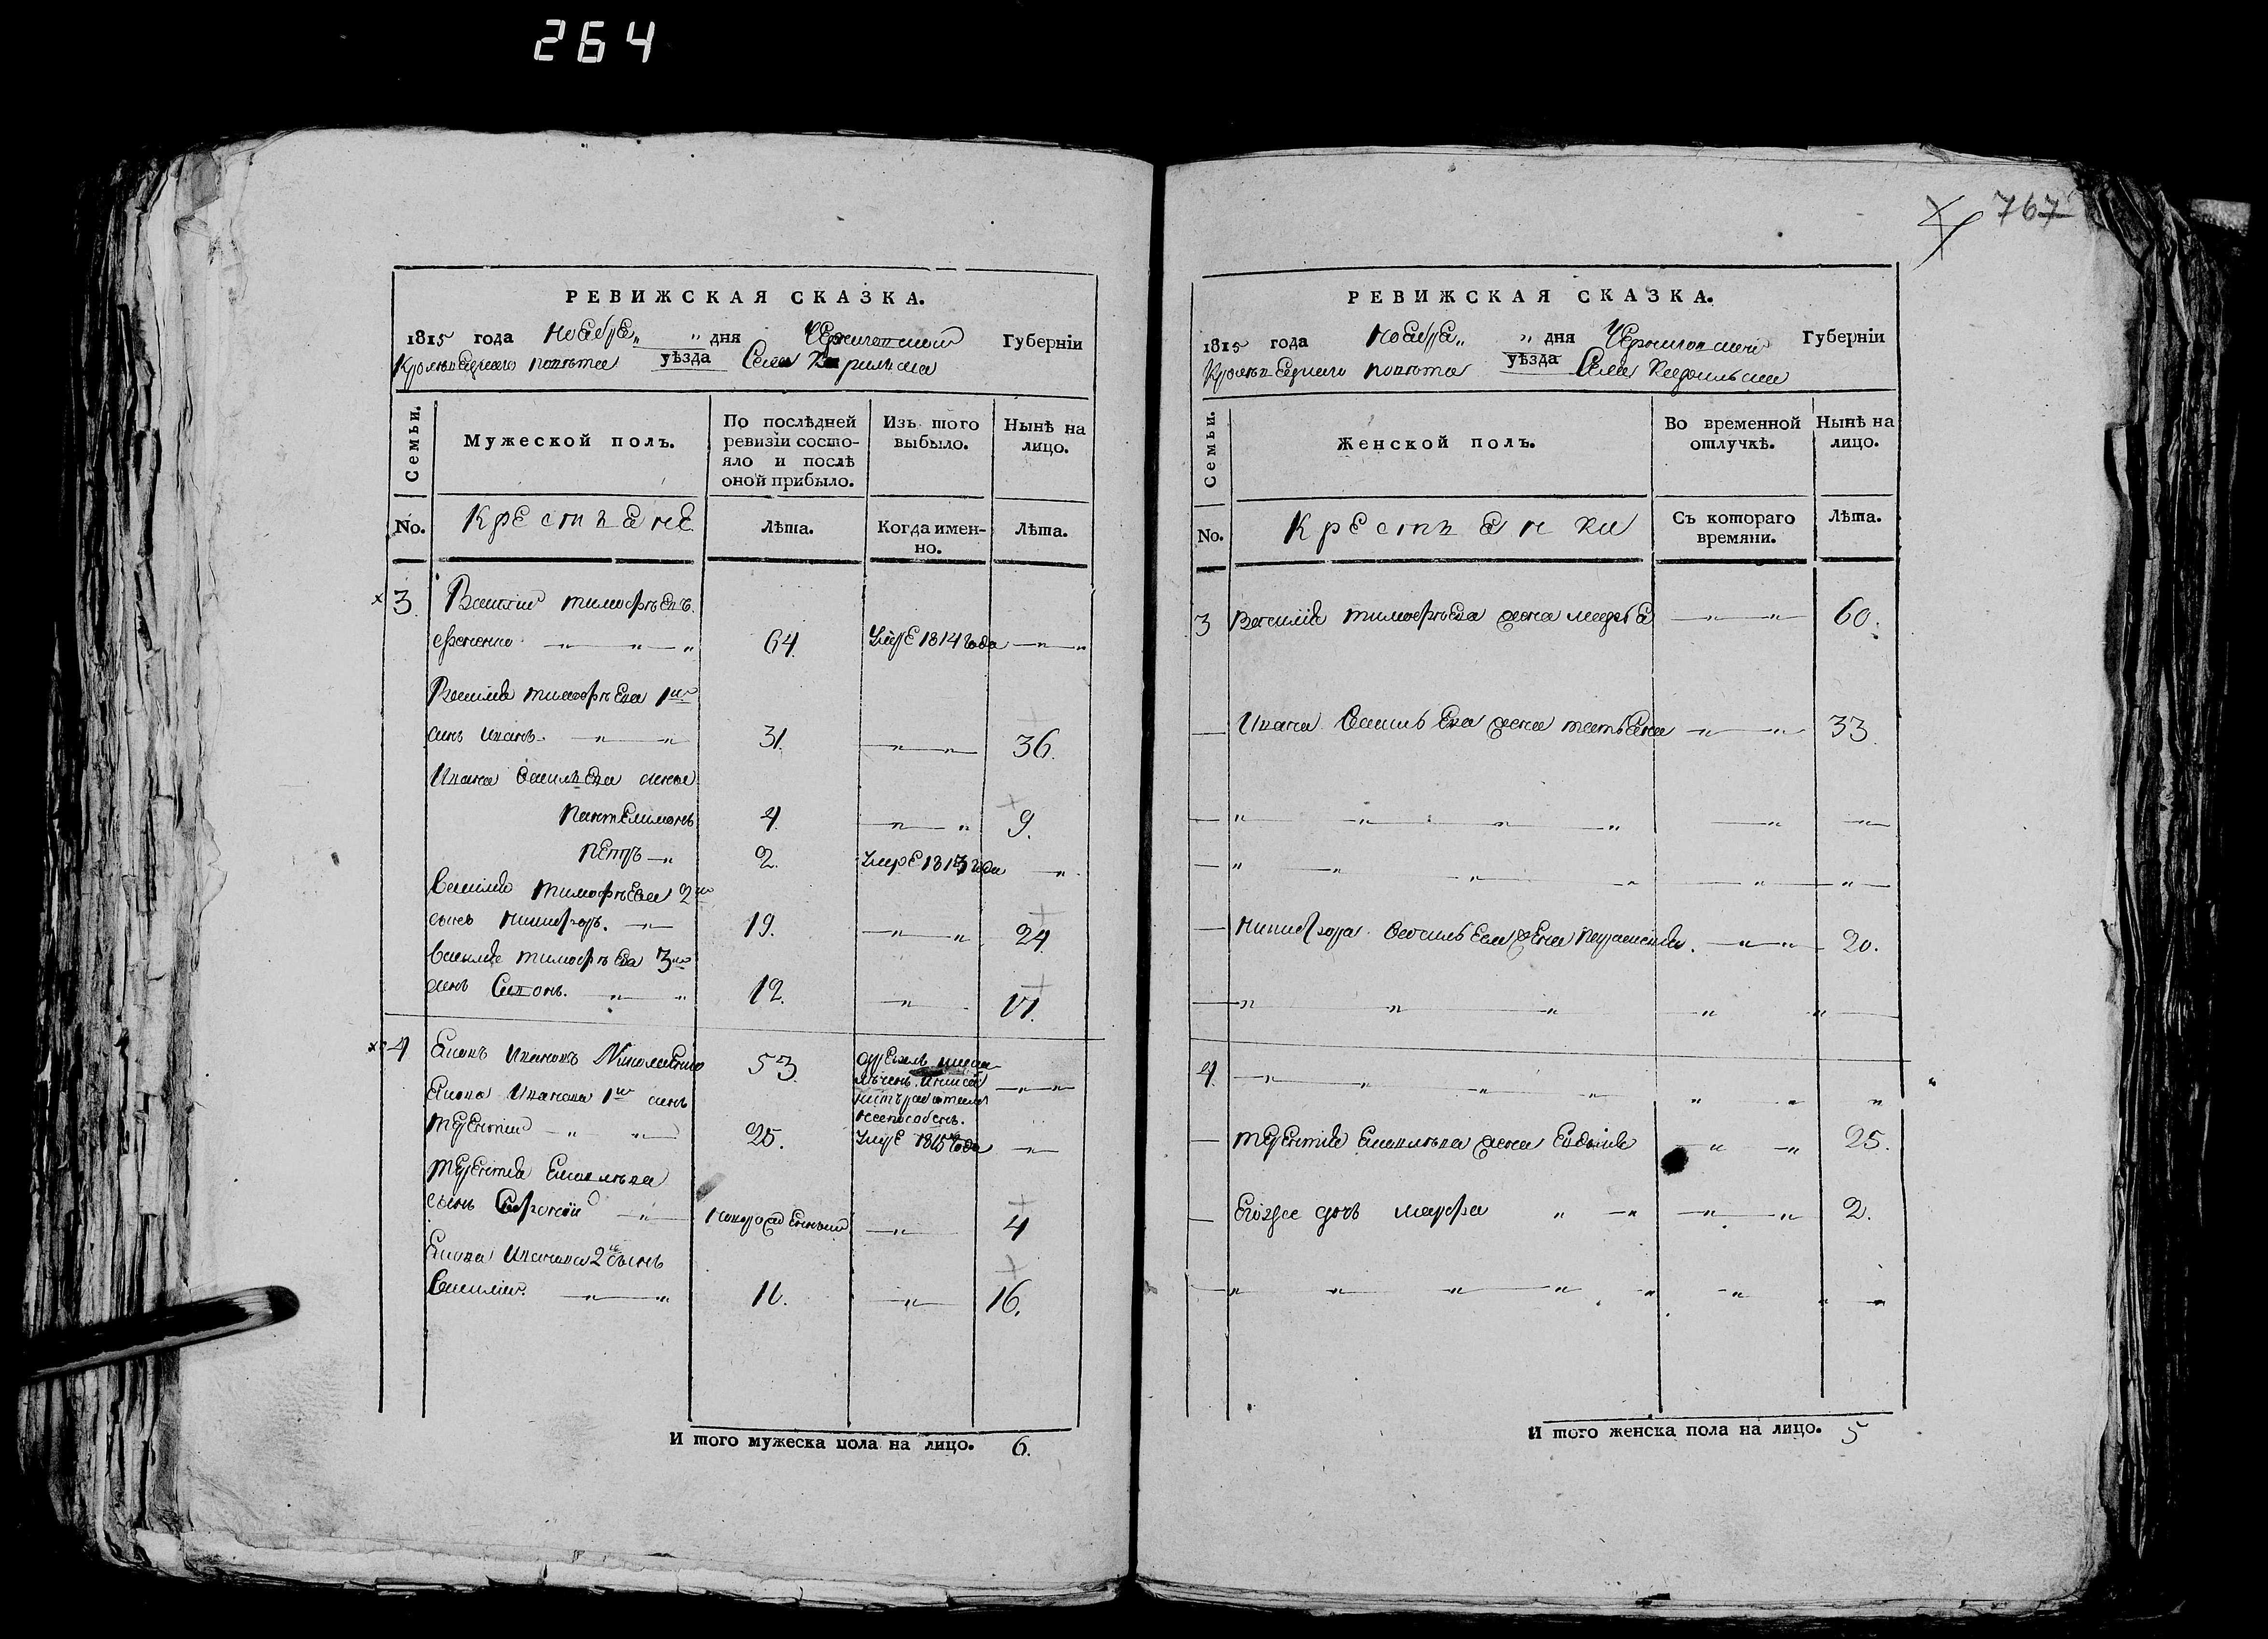 264
767
РЕВИЖСКАЯ СКАЗКА.
1815 года ноября „ дня Черниговской Губерніи
Кролевецкого повѣта уѣзда Села
Семьи.
Мужеской полъ.
По послѣдней ревизіи состо-
яло и послѣ
оной прибыло.
Изъ того
выбыло.
Нынѣ на
лицо.
No.
Крестьяне
Лѣта.
Когда имен-
но.
Лѣта.
3 Василій тимофѣевъ
64. Умре 1814 года
Василія тимофѣева 1й
синъ иванъ. 31. 36.
Ивана васильева сины
пантелимонъ 4. 9.
петръ 2. Умре 1813 года
василія тимофѣева 2й
сынъ никифоръ. 19. 24.
василія тимофѣева 3й
синъ 12. 17.
4 Ивановъ 53.
Иванова 1й синъ
терентий 25. Умре 1815 года
терентія
сынъ новорожденный 4
Иванова 2й сынъ
василий. 11. 16.
И того мужеска пола на лицо. 6.
РЕВИЖСКАЯ СКАЗКА.
1815 года ноября „ дня Черниговской Губерніи
Кролевецкого повѣта уѣзда Села
Семьи.
Женской полъ.
Во временной
отлучкѣ.
Нынѣ на
лицо.
No.
Крестьянки
Съ котораго
времяни.
Лѣта.
3 Василія тимофѣева жена 60.
Ивана васильева жена татьяна 33.
никифора васильева жена 20.
4.
терентія жена 25.
Егоже дочь марфа 2.
И того женска пола на лицо. 5